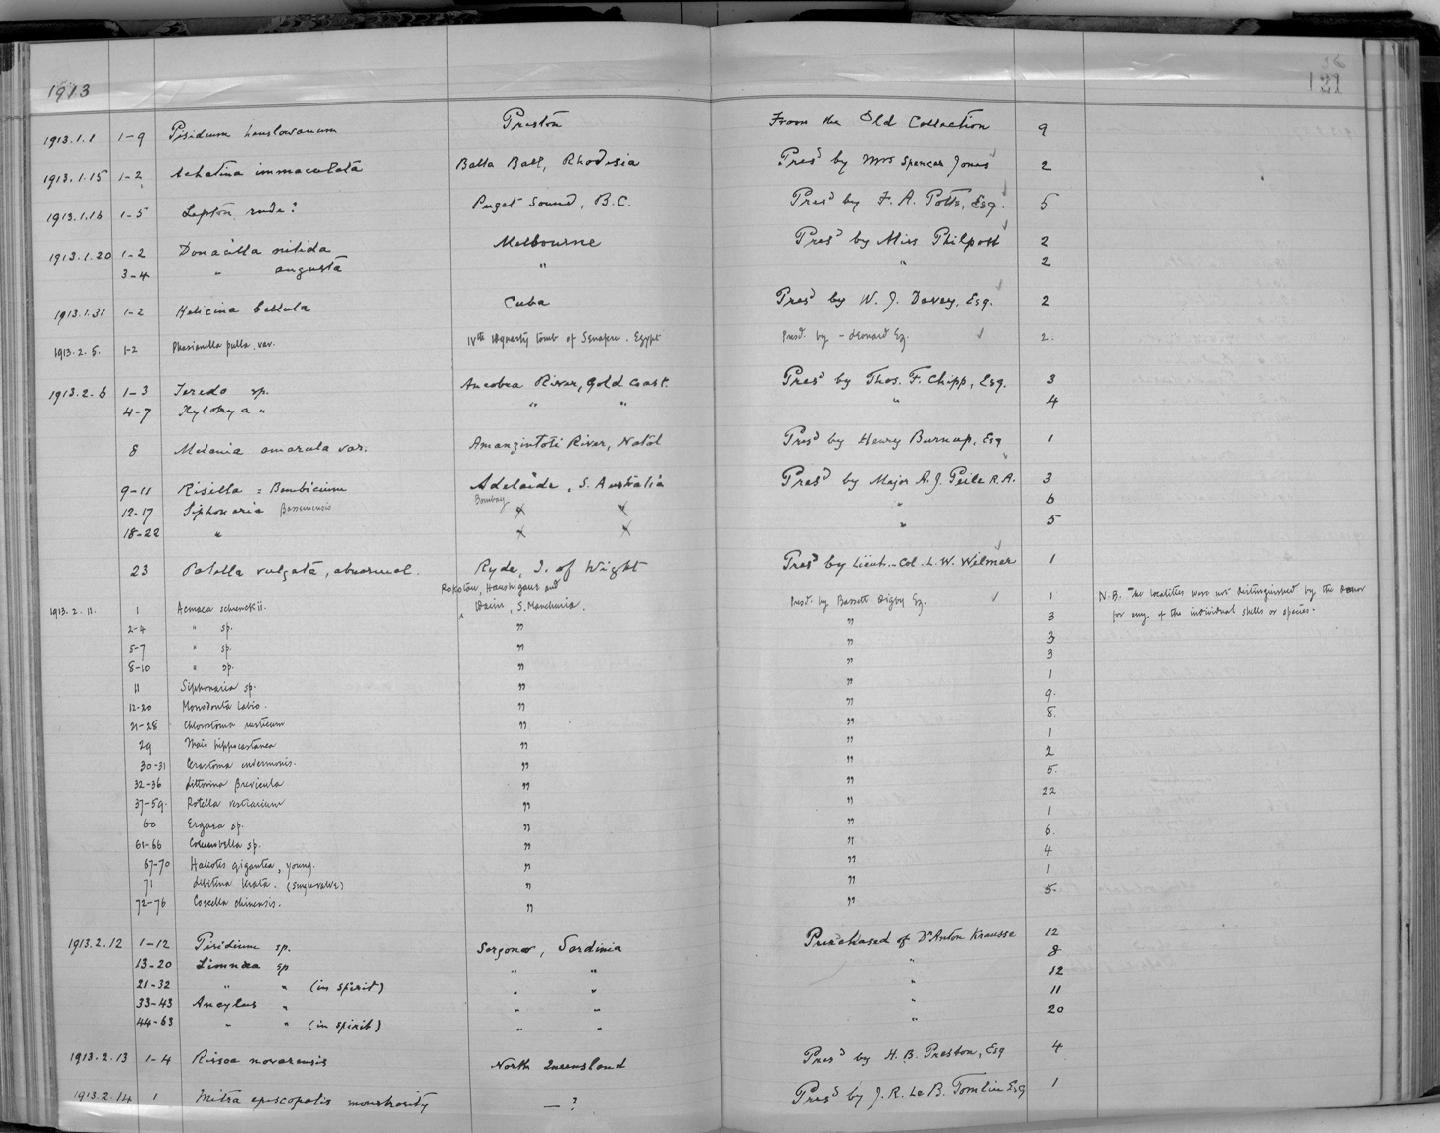 1913
121
1913.1.1 1-9 Pisidium henslowanum Preston From the Old Collection 9
1913.1.15 1-2 Achatina immaculata Balla Ball, Rhodesia Presd by Mrs Spencer Jones 2
1913.1.16 1-5 Lepton rude? Puget Sound, B.C. Presd by F. A. Potts, Esq. 5
1913.1.20 1-2 Donacilla nitida Melbourne Presd by Miss Philpott 2
3-4 " angusta " " 2
1913.1.31 1-2 Helicina bellula Cuba Presd by W. J. Davey, Esq. 2
1913.2.5. 1-2 Phasianella pulla, var. IVth Dynasty tomb of Senefere. Egypt Presd. by - Leonard Esq. 2.
1913.2.6 1-3 Teredo sp. Ancobra River, Gold Coast. Presd by Thos. F. Chipp, Esq. 3
4-7 Xylotrya " " " " 4
8 Melania amarula var. Amanzintoti River, Natal Presd by Henry Burnup, Esq 1
9-11 Risella = Bembicium Adelaide, S. Australia Presd by Major A. J. Peile R.A. 3
12-17 Siphonaria Basseinensis Bombay " 6
18-22 " " 5
23 Patella vulgata, abnormal. Ryde, I. of Wight Presd by Lieut.-Col. L. W. Wilmer 1
1913.2.11. 1 Acmaea schrenckii. and S. Manchuria. Presd. by Bassett Digby Esq. 1 N.B. The localities were not distinguished by the donor
2-4 " sp. " " 3 for any of the individual shells or species.
5-7 " sp. " " 3
8-10 " sp. " " 3
11 Siphonaria sp. " " 1
12-20 Monodonta labio. " " 9.
21-28 Chlorostoma rusticum " " 8.
29 Thais hippocastanea " " 1
30-31 Cerastoma " " 2
32-36 Littorina brevicula " " 5.
37-59. Rotella vestiarium " " 22
60 sp. " " 1
61-66 Columbella sp. " " 6.
67-70 Haliotis gigantea, young. " " 4
71 (single valve) " " 1
72-76 chinensis. " " 5.
1913.2.12 1-12 Pisidium sp. Sorgono, Sardinia Purchased of Dr Anton Krausse 12
13-20 Limnaea sp " " " 8
21-32 " " (in spirit) " " " 12
33-43 Ancylus " " " " 11
44-63 " " (in spirit) " " " 20
1913.2.13 1-4 Rissoa novarensis North Queensland Presd by H. B. Preston, Esq 4
1913.2.14 1 Mitra episcopalis monstrosity — ? Presd by J. R. Le B. Tomlin Esq 1